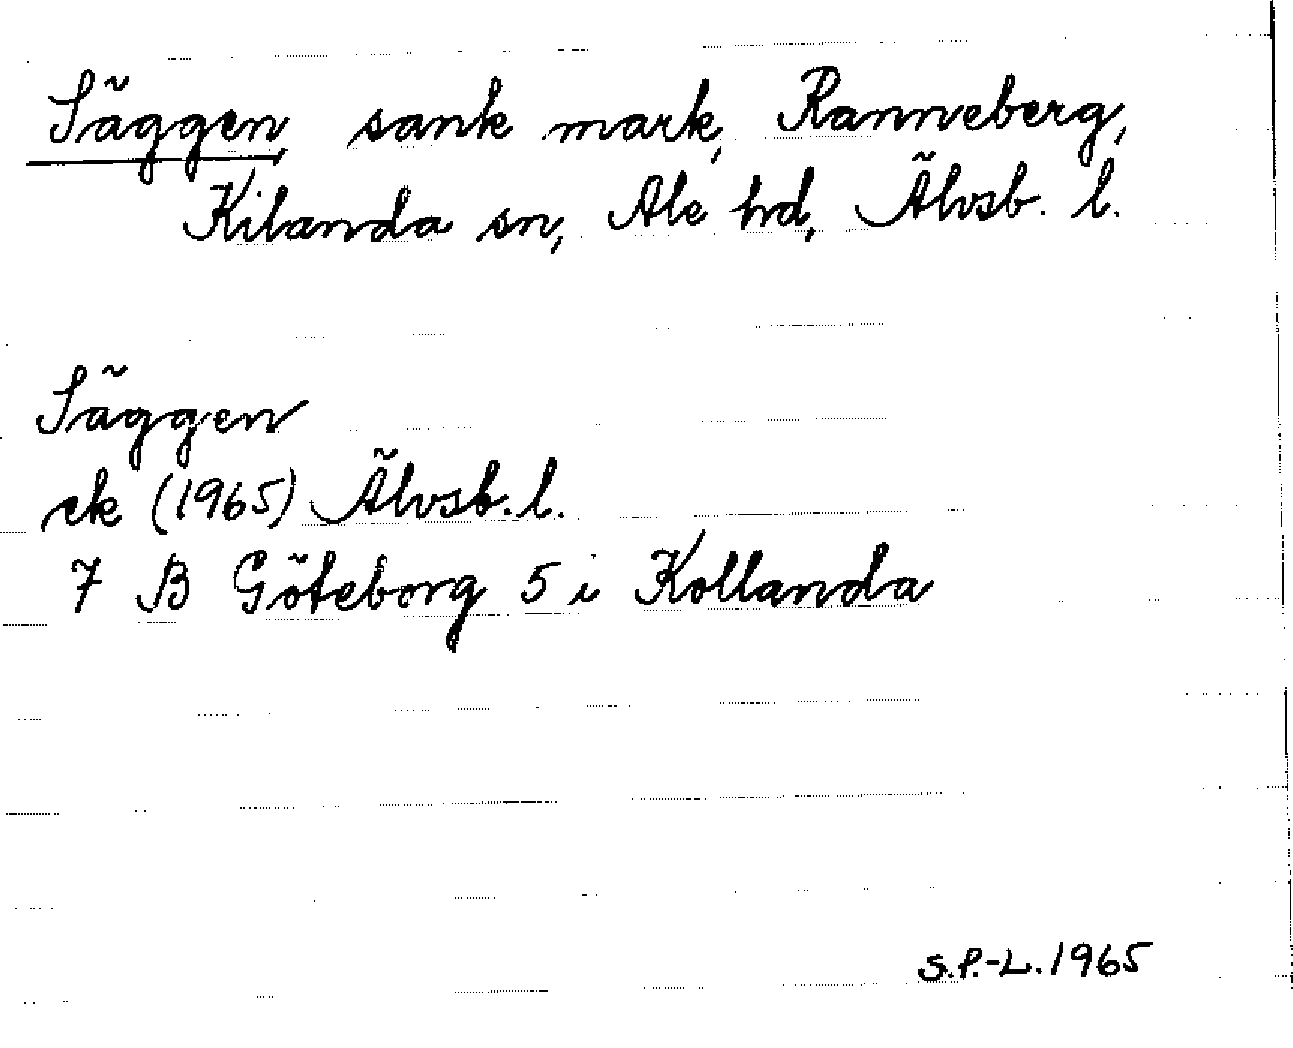 Säggen, sank mark, Ranneberg,
Kilanda sn, Ale hd, Älvsb. l.
Säggen
ek (1965) Älvsb. l.
7 B Göteborg 5 i Kollanda
S.P.-L. 1965